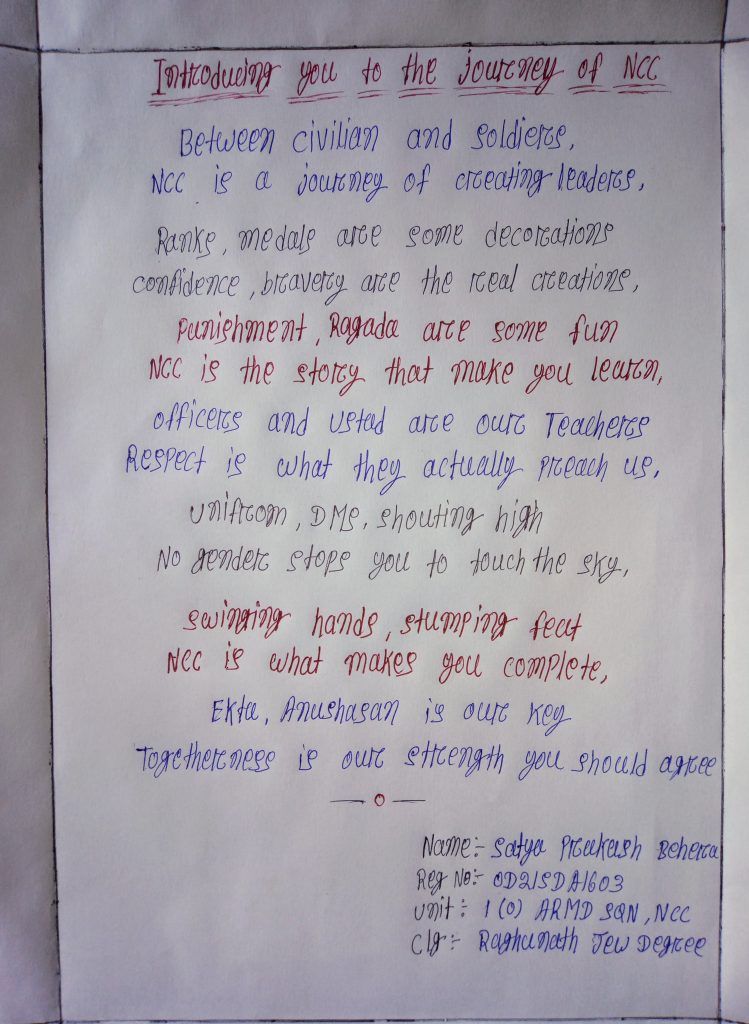 Introducing you to the journey of NCC
Between civilian and soldiers,
NCC is a journey of creating leaders,
Ranks, medals are some decorations
confidence, bravery are the real creations,
Punishment, Ragada are some fun
NCC is the story that make you learn,
officers and ustad are our Teachers
Respect is what they actually preach us,
unifrom, DMs, shouting high
No gender stops you to touch the sky,
swinging hands, stumping feat
NCC is what makes you complete,
Ekta, Anushasan is our key
Togetherness is our strength you should agree
—o—
Name:- Satya Prakash Behera
Reg No:- OD21SDA1603
unit:- 1 (O) ARMD SQN, NCC
Clg:- Raghunath Jew Degree